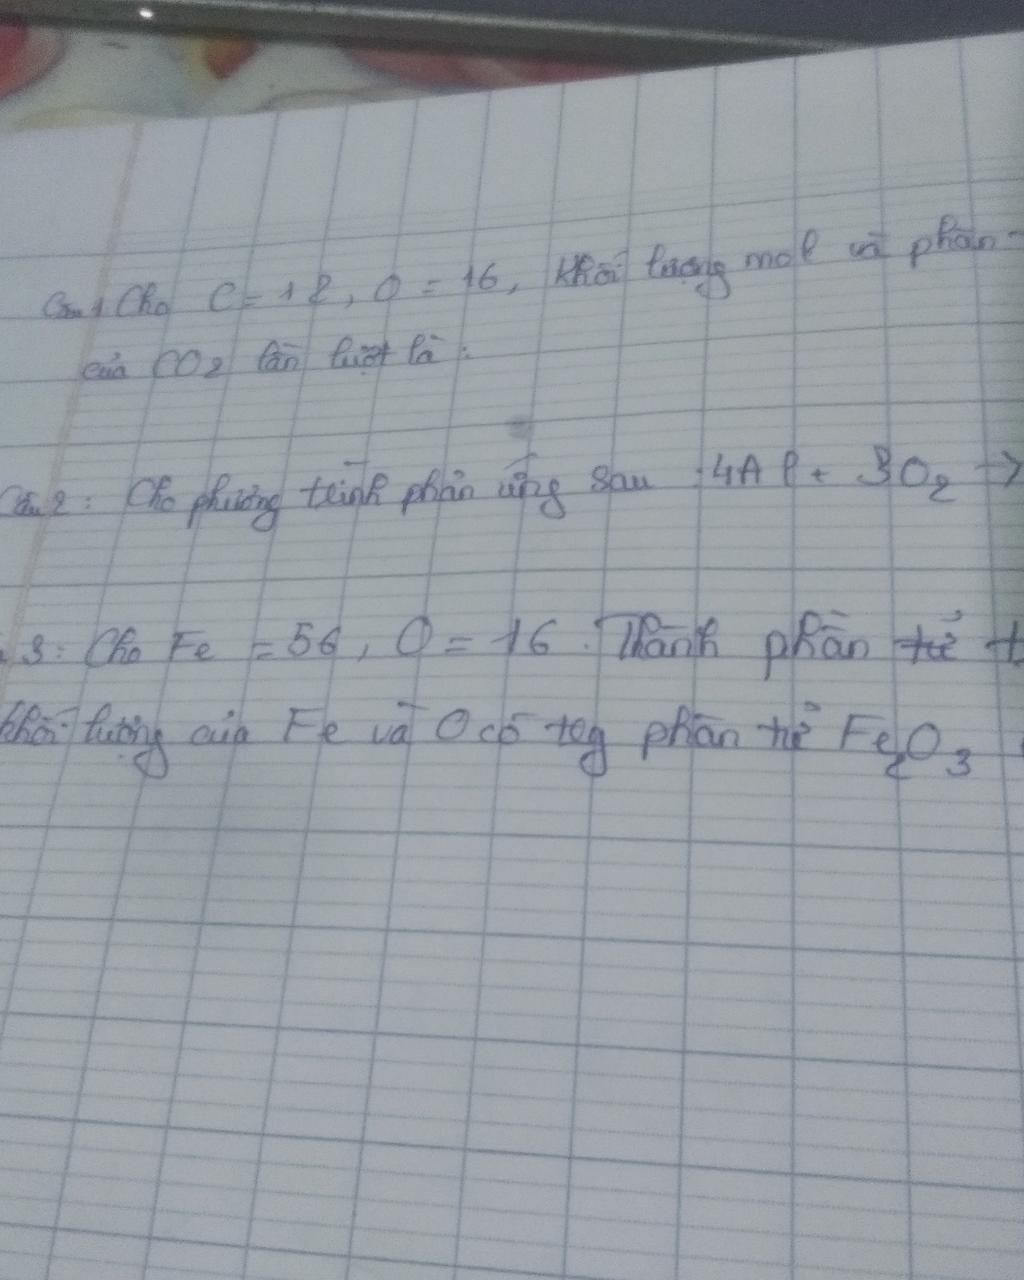 Câu 1 Cho C = 12, O = 16, khối lượng mol và phân
của CO2 lần lượt là:
Câu 2: Cho phương trình phản ứng sau :4Al + 3O2 →
3: Cho Fe = 56, O = 16. Thành phần tử
khối lượng của Fe và O có tog phân tử Fe2O3